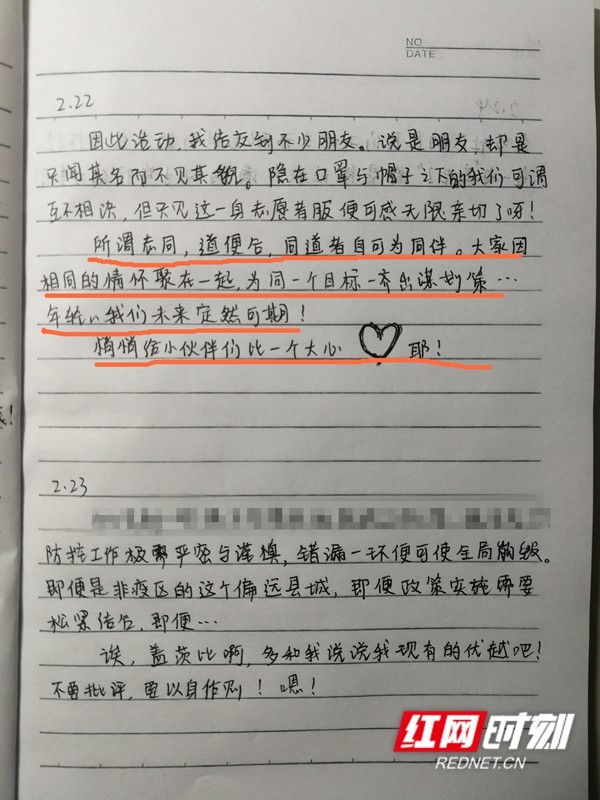 NO
DATE
2.22
因此活动,我结交到不少朋友。说是朋友,却是
只闻其名而不见其貌。隐在口罩与帽子之下的我们可谓
互不相识,但只见这一身志愿者服便可感无限亲切了呀!
所谓志同,道便合,同道者自可为同伴。大家因
相同的情怀聚在一起,为同一个目标一齐出谋划策…
年轻的我们未来定然可期!
悄悄给小伙伴们比一个大心 耶!
2.23
防控工作极需严密与谨慎,错漏一环便可使全局崩毁。
即便是非疫区的这个偏远县城,即便政策实施需要
松紧结合,即便…
诶,盖茨比啊,多和我说说我现有的优越吧!
不要批评,要以身作则!嗯!
红网时刻
REDNET.CN